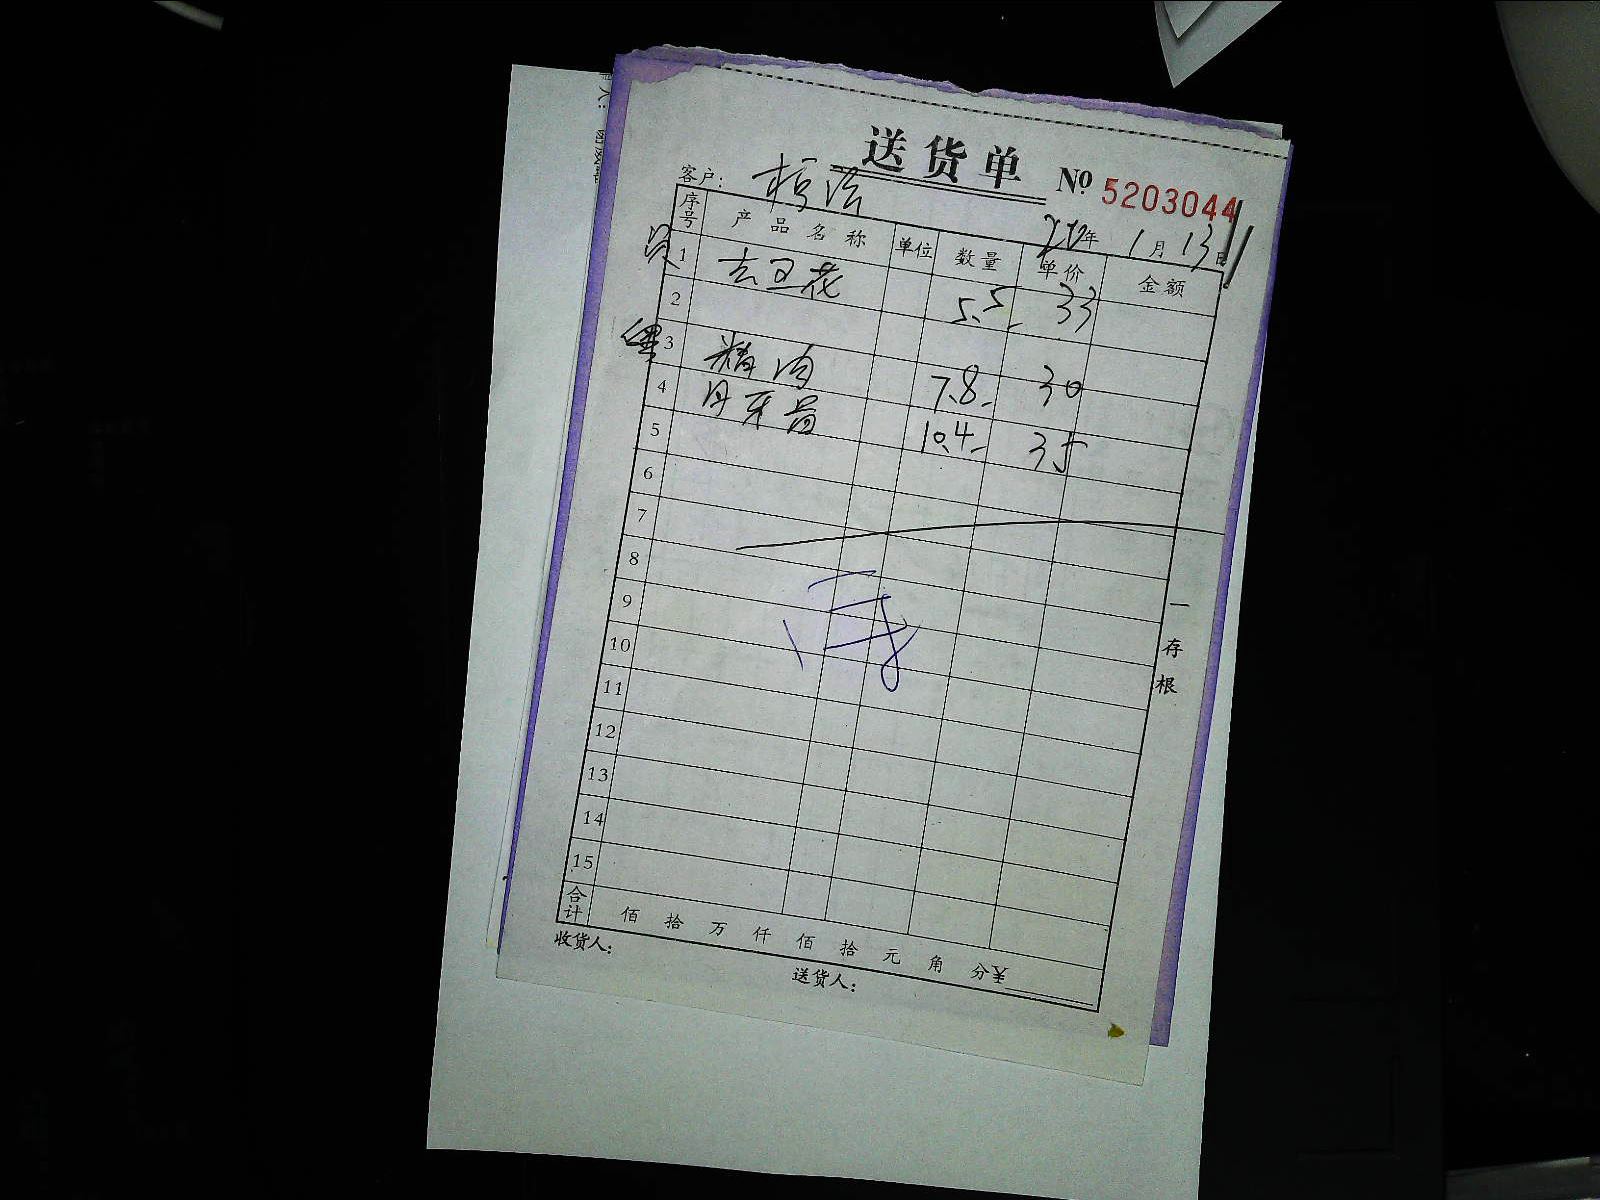 送货单 № 5203044
客户:
20年 1月13日
序号 产品名称 单位 数量 单价 金额
1 去卫花 5.5 33
2
3 精肉 7.8 30
4 月牙骨 10.4 35
5
6
7
8
9
10
11
12
13
14
15
合计 佰 拾 万 仟 佰 拾 元 角 分 ¥
收货人:
送货人:
一存根